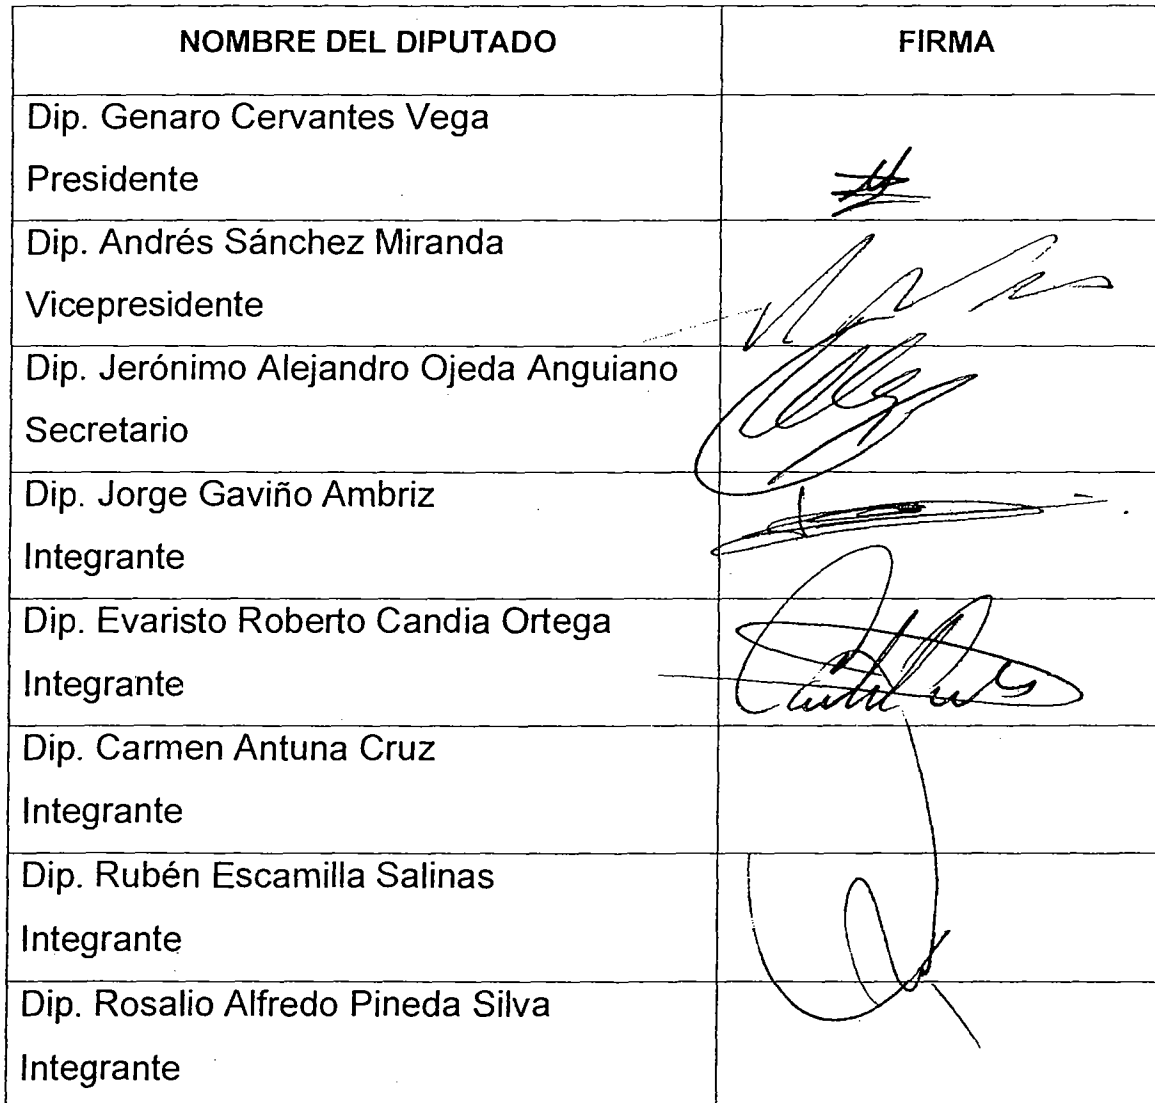 NOMBRE DEL DIPUTADO
FIRMA
Dip. Genaro Cervantes Vega
Presidente
Dip. Andrés Sánchez Miranda
Vicepresidente
Dip. Jerónimo Alejandro Ojeda Anguiano
Secretario
Dip. Jorge Gaviño Ambriz
Integrante
Dip. Evaristo Roberto Candia Ortega
Integrante
Dip. Carmen Antuna Cruz
Integrante
Dip. Rubén Escamilla Salinas
Integrante
Dip. Rosalio Alfredo Pineda Silva
Integrante